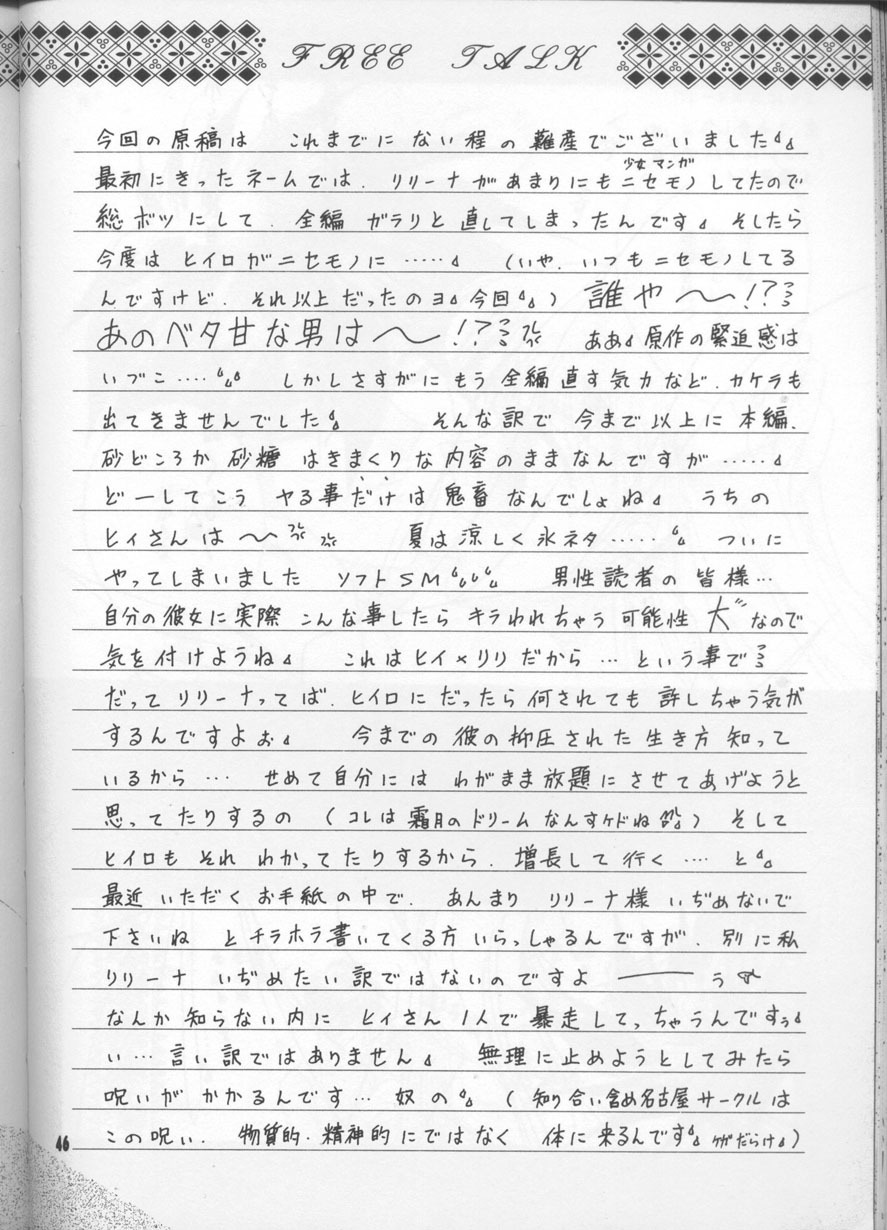 FREE TALK
今回の原稿は これまでに ない程の 難産でございました
少女マンガ
最初にきったネームでは、リリーナがあまりにもニセモノしてたので
総ボツにして、全編 ガラリと直してしまったんです そしたら
今度は ヒイロがニセモノに …… (いや、いつもニセモノしてる
んですけど、それ以上だったのヨ 今回) 誰や〜!?
あのベタ甘な男は〜!? ああ 原作の緊迫感は
いづこ…… しかしさすがにもう全編直す気力など、カケラも
出てきませんでした そんな訳で 今まで以上に本編、
砂どころか 砂糖 はきまくりな内容のままなんですが ……
どーしてこう ヤる事だけは鬼畜なんでしょね うちの
ヒイさんは〜 夏は涼しく氷ネタ…… ついに
やってしまいました ソフトSM 男性読者の皆様…
自分の彼女に実際 こんな事したら キラわれちゃう 可能性 大 なので
気を付けようね これはヒイ×リリだから … という事で
だって リリーナってば、ヒイロにだったら何されても許しちゃう気が
するんですよぉ 今までの彼の抑圧された生き方 知って
いるから … せめて自分には わがまま放題にさせてあげようと
思ってたりするの (コレは 霜月のドリームなんすケドね) そして
ヒイロも それ わかってたりするから、増長して行く …. と
最近 いただくお手紙の中で、あんまり リリーナ様 いぢめないで
下さいね とチラホラ書いてくる方いらっしゃるんですが、別に私
リリーナ いぢめたい訳ではないのですよ ── う
なんか 知らない内に ヒイさん 1人で暴走してっちゃうんですぅ
い … 言い訳ではありません 無理に止めようとしてみたら
呪いが かかるんです … 奴の (知り合い含め名古屋サークルは
この呪い、物質的・精神的にではなく 体に来るんです ケガだらけ)
46